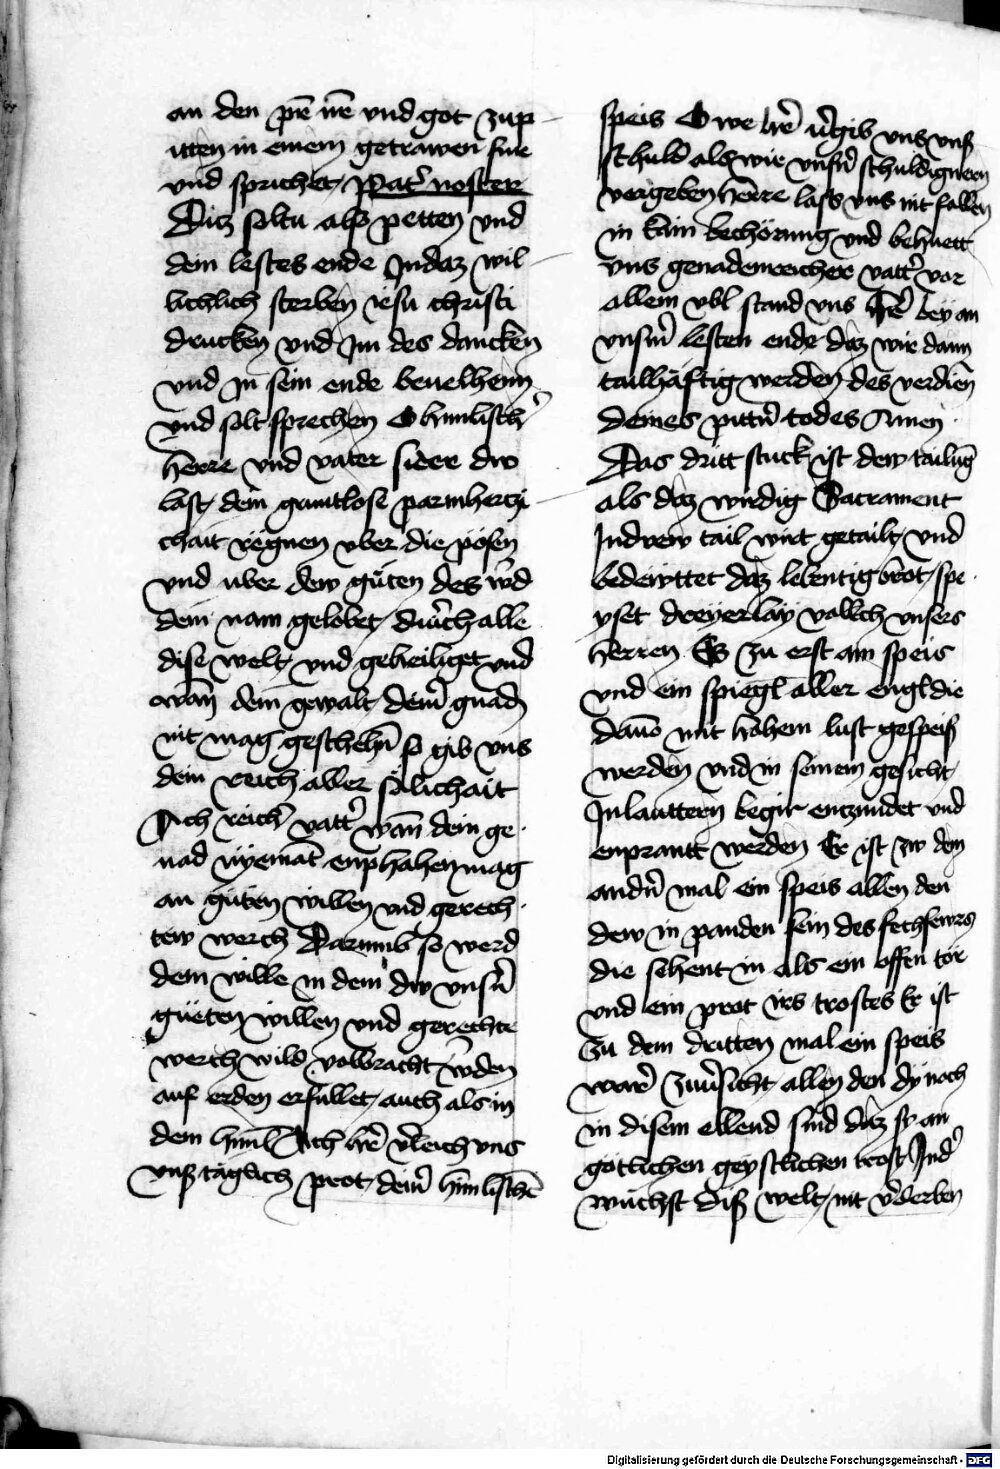 an den pr̄e nē und got zup
itten in einem getrawen sine
und sprichet Pat̾ noster
Ditz soltu also petten und
dein lestes ende Indaz wil
lichlich sterben iesu christi
drucken und Im des dancken
und In sein ende beuelhenn
und solt sprechen O himlisch̾
herre und vater sider dw
last dein grintlose parmhertzi
chait regnen vber die pösen
und uber dew güten des w̾d
dein nam gelobet durch alle
dise welt und geheiliget und
wan̄ dein gewalt dein̾ gnad
nit mag geschehn̄ so gib vns
dein reich aller sälichait
Sich reich̾ vatt̾ wan̄ dein ge
nad nyemāt enphahen mag
an güten willen und gerech
tew werch Darumb so werd
dein wille in dem dw unsn̾
güeten willen und gerechte
werch wild volbracht w̾den
auf erden erfullet auch als in
dem himl̄ Ach hr̄e v̾leich uns
uns täglich prot dein̾ himlischē
speis O we hr̄e v̾gib uns uns̾
schuld als wir unsn̾ schuldignern
vergeben herre lass vns nit fallen
in kain bechörung und behuett
vns genadenreicher vatt̾ vor
allem vbl stand vns hr̄e bey an
unsm̾ lesten ende daz wir dann
tailhäftig werden des verdien̄
deines pittn̾ todes Amen
Das dritt stuck ist dew tailūg
als daz wirdig Sacrament
In drew tail wirt getailt und
bedewttet daz lebentig brot spe
yset dreyerlay vollch unsers
herren Es zu erst ain speis
und ein spiegl aller engl die
dauō mit hohem lust gespeist
werden und in seinem gesicht
In lauttern begir enczundet und
enprantt werden Er ist zw dem
andn̾ mal ein speis allen den
dew in panden sein des fechfewrs
die sehent in als ein offen tör
und ein prot irs trostes Er ist
Zu dem dritten mal ein speis
war̾ zuu̾sicht allen den dy noch
in disem ellend sind daz sy an
götlichen geystlichen trost Ind̾
wüchst diser welt nit v̾derben
Digitalisierung gefördert durch die Deutsche Forschungsgemeinschaft - DFG